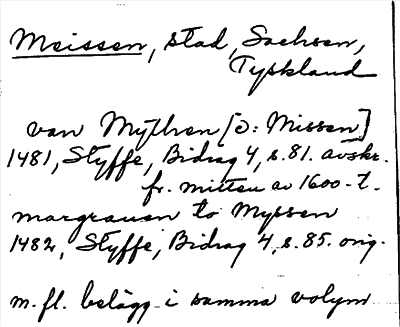 Meissen, stad, Sachsen,
Tyskland
van Mythsen [ɔ: Missen]
1481, Styffe, Bidrag 4, s. 81. avskr.
fr. mitten av 1600-t.
margrauen to Myssen
1482, Styffe, Bidrag 4, s. 85. orig.
m.fl. belägg i samma volym